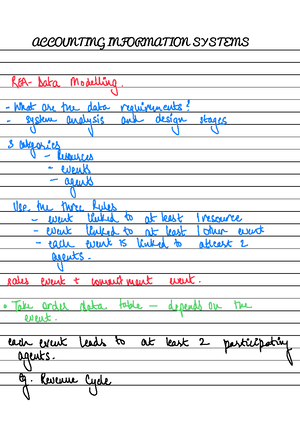 ACCOUNTING INFORMATION SYSTEMS
REA- Data Modelling.
- What are the data requirements?
- system analysis and design stages
3 categories
- Resources
- events
- agents
Use the three Rules
- event linked to at least 1 resource
- event linked to at least 1 other event
- each event is linked to atleast 2
agents.
sales event + commitment event.
• Take order data table — depends on the
event.
each event leads to at least 2 participating
agents.
Eg. Revenue Cycle